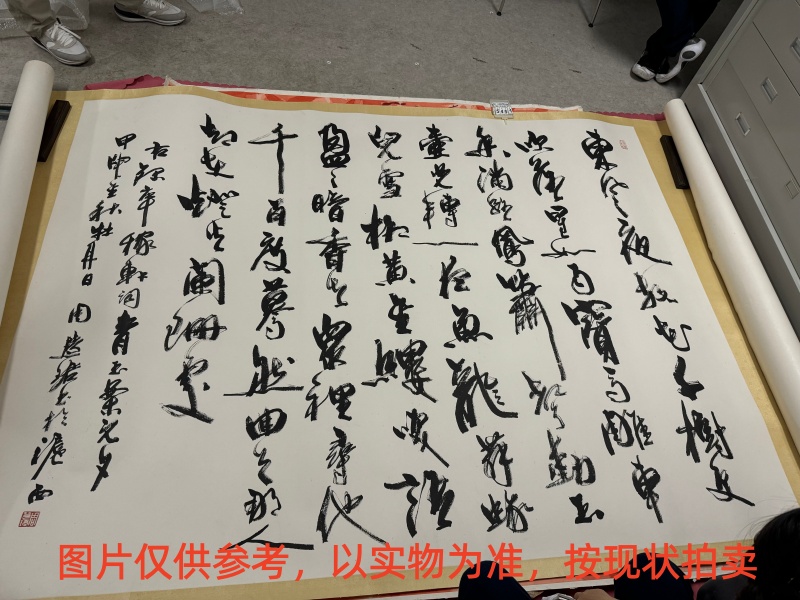 東風夜放花千樹更
吹落星如雨寶馬雕車
香滿路鳳簫聲動玉
壺光轉一夜魚龍舞蛾
兒雪柳黃金縷笑語
盈〻暗香去眾裡尋他
千百度驀然回首那人
却在燈火闌珊處
右録辛稼軒詞青玉案元夕
甲年秋牡丹日周書於滬西
图片仅供参考，以实物为准，按现状拍卖